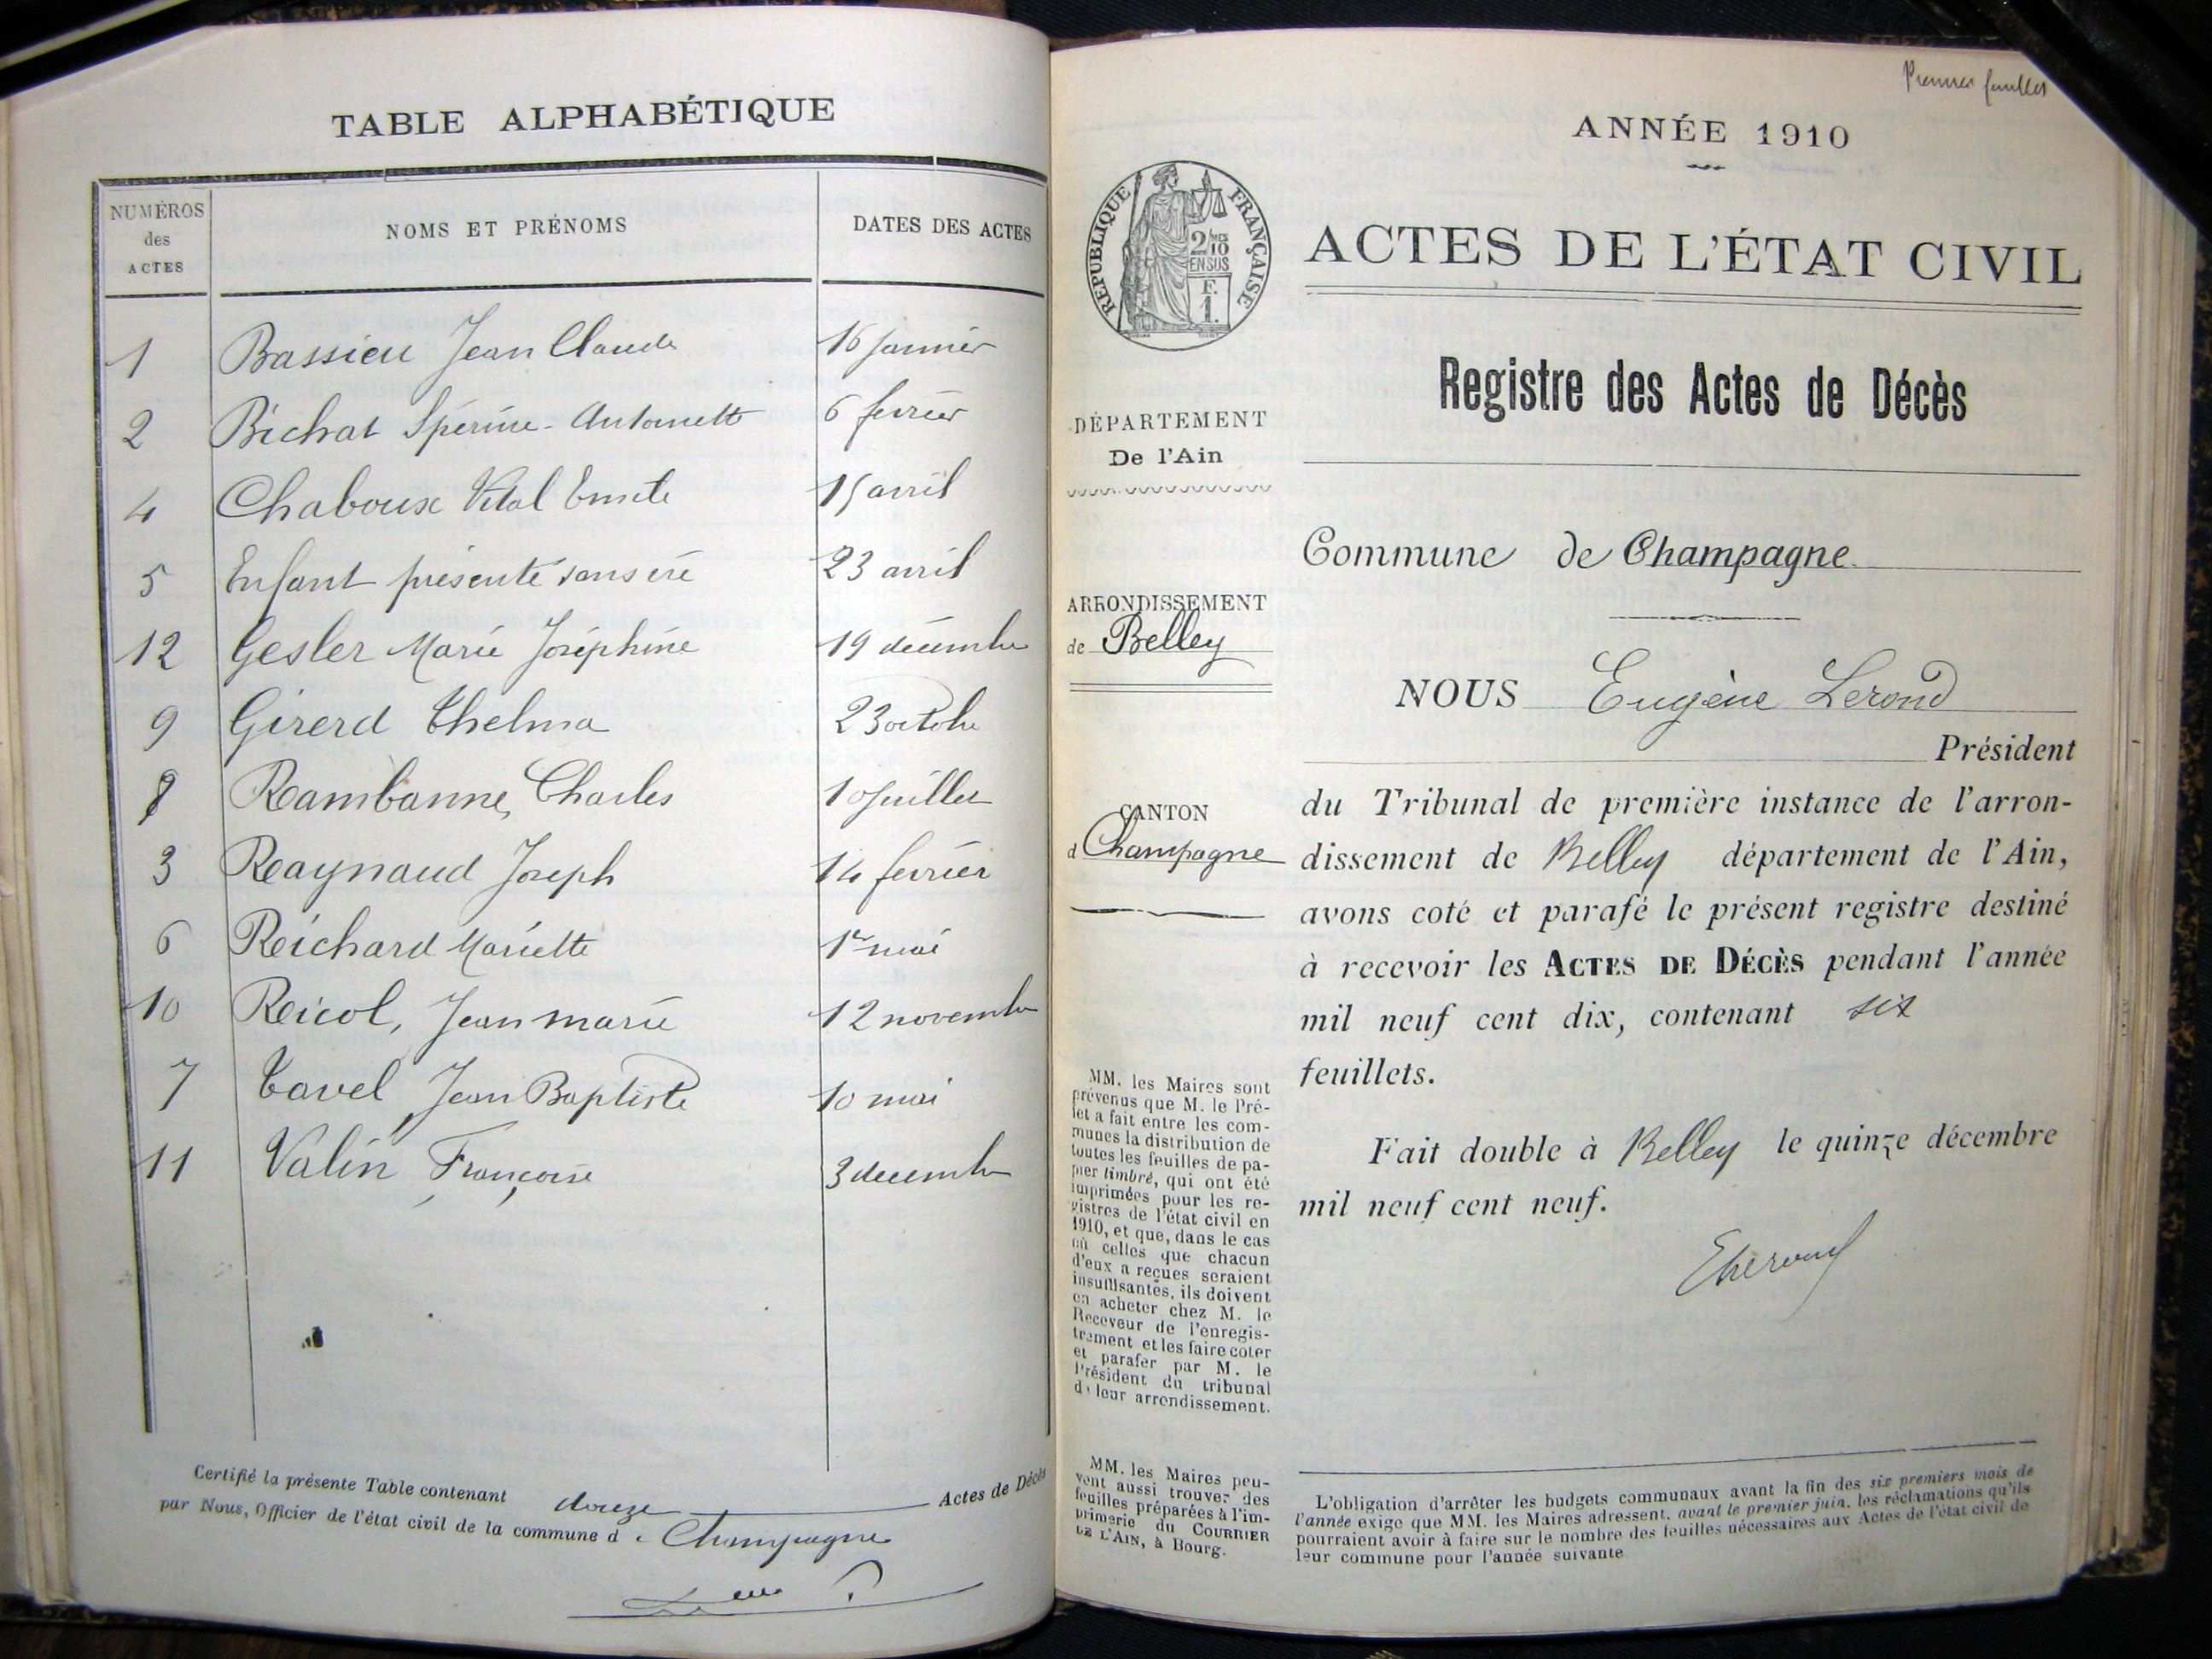 TABLE ALPHABÉTIQUE
NUMÉROS des ACTES NOMS ET PRÉNOMS DATES DES ACTES
1 Bassieu Jean Claude 16 janvier
2 Bichat Spérine-Antoinette 6 fevrier
4 Chaboux Vital Emile 15 avril
5 Enfant présenté sans vie 23 avril
12 Gesler Marie Joséphine 19 décembre
9 Girerd Thelma 23 octobre
8 Rambanne, Charles 10 juillet
3 Raynaud Joseph 14 fevrier
6 Richard Mariette 1er mai
10 Ricol, Jean marie 12 novembre
7 Tavel Jean Baptiste 10 mai
11 Valin Françoise 3 decembre
Certifié la présente Table contenant douze Actes de Décès
par Nous, Officier de l'état civil de la commune d e Champagne
Premier feuillet
ANNÉE 1910
RÉPUBLIQUE FRANÇAISE
2/10
EN SUS
F.
1.
ACTES DE L'ÉTAT CIVIL
Registre des Actes de Décès
DÉPARTEMENT
De l'Ain
Commune de Champagne
ARRONDISSEMENT
de Belley
NOUS Eugène Lerond
Président
CANTON
d Champagne
du Tribunal de première instance de l'arron-
dissement de Belley département de l'Ain,
avons coté et parafé le présent registre destiné
à recevoir les ACTES DE DÉCÈS pendant l'année
mil neuf cent dix, contenant six
feuillets.
Fait double à Belley le quinze décembre
mil neuf cent neuf.
MM. les Maires sont
prévenus que M. le Pré-
fet a fait entre les com-
munes la distribution de
toutes les feuilles de pa-
pier timbré, qui ont été
imprimées pour les re-
gistres de l'état civil en
1910, et que, dans le cas
où celles que chacun
d'eux a reçues seraient
insuffisantes, ils doivent
en acheter chez M. le
Receveur de l'enregis-
trement et les faire coter
et parafer par M. le
Président du tribunal
de leur arrondissement.
MM. les Maires peu-
vent aussi trouver des
feuilles préparées à l'im-
primerie du COURRIER
DE L'AIN, à Bourg.
L'obligation d'arrêter les budgets communaux avant la fin des six premiers mois de
l'année exige que MM. les Maires adressent, avant le premier juin, les réclamations qu'ils
pourraient avoir à faire sur le nombre des feuilles nécessaires aux Actes de l'état civil de
leur commune pour l'année suivante